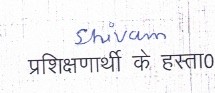 Shivam
प्रशिक्षणार्थी के हस्ता0